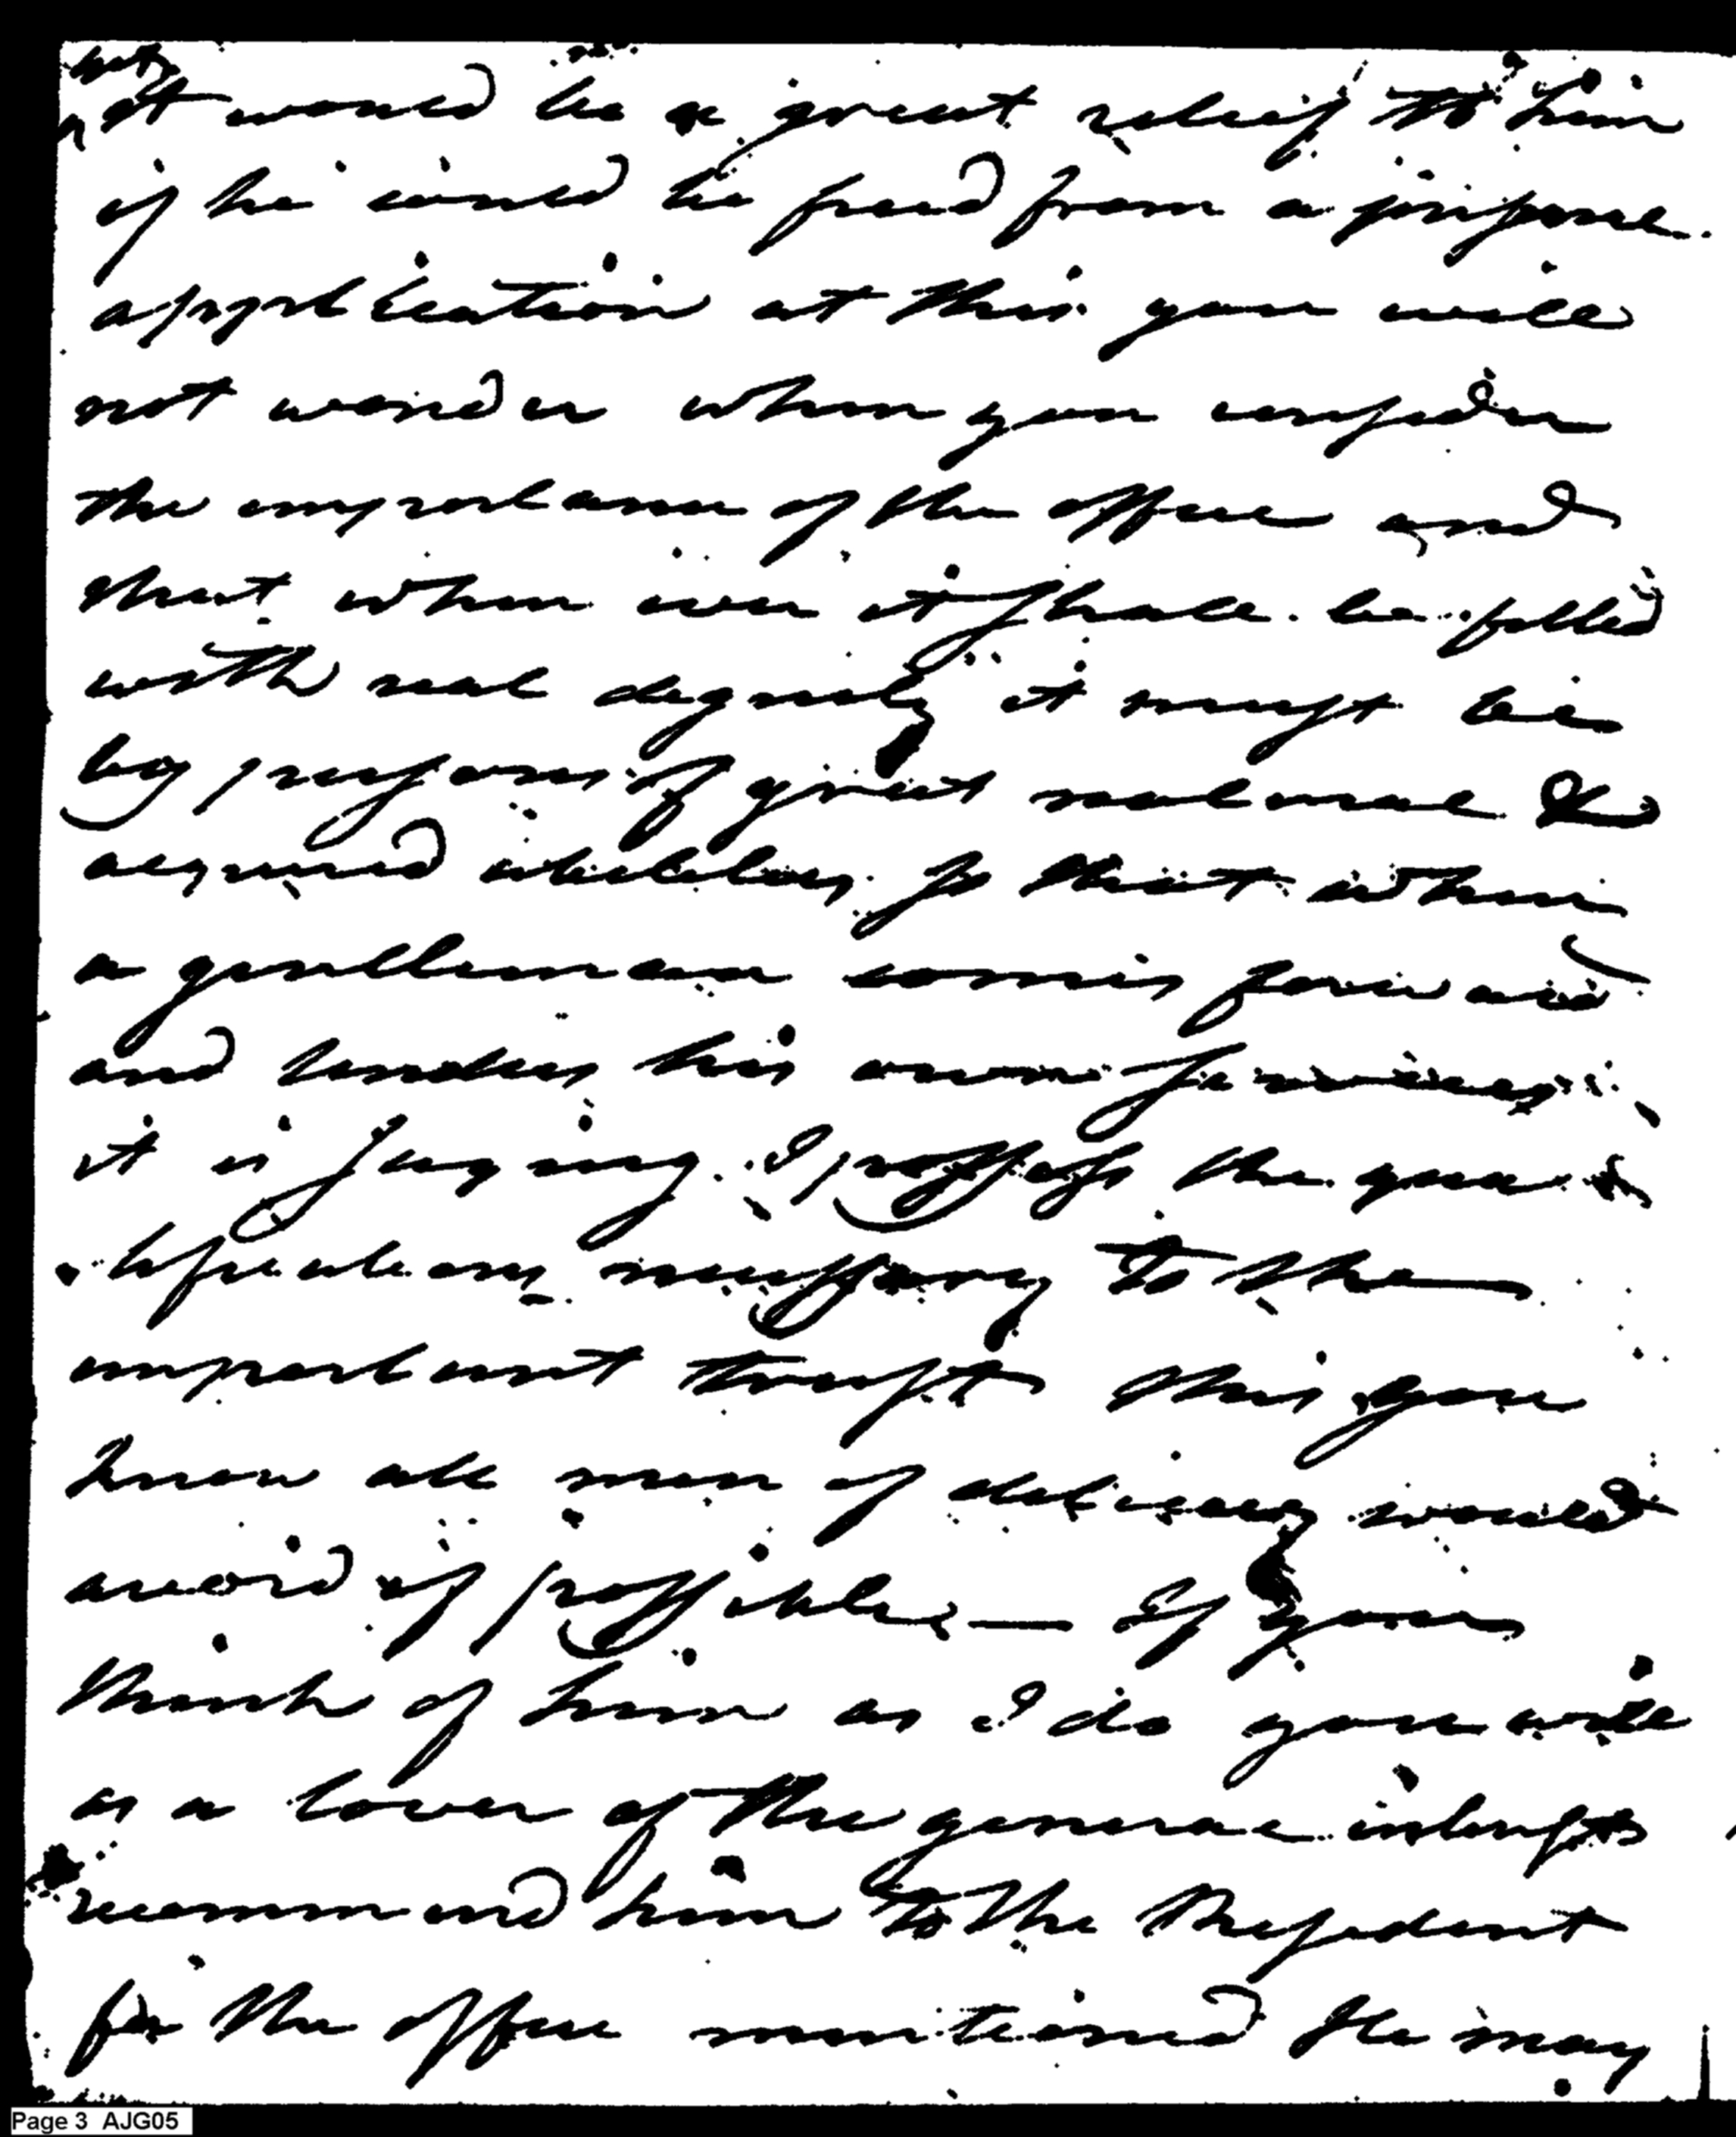 it would be a great relief to him
if he could be freed from a personal
application at this you will
not wonder when you consider
the importance of the office and
that when ever it shall be filled
with real dignity it must be
by persons of great natural &
acquired abilities so that when
a gentleman comes forward
and tenders his own services
it is saying I possess the great
abilities necessary to the
important trust this you
know all men of delicacy would
avoid if possible — If you
think of him as I do you will
as a lover of the general interests
recommend him to the President
for the office mentioned He may
Page 3 AJG05